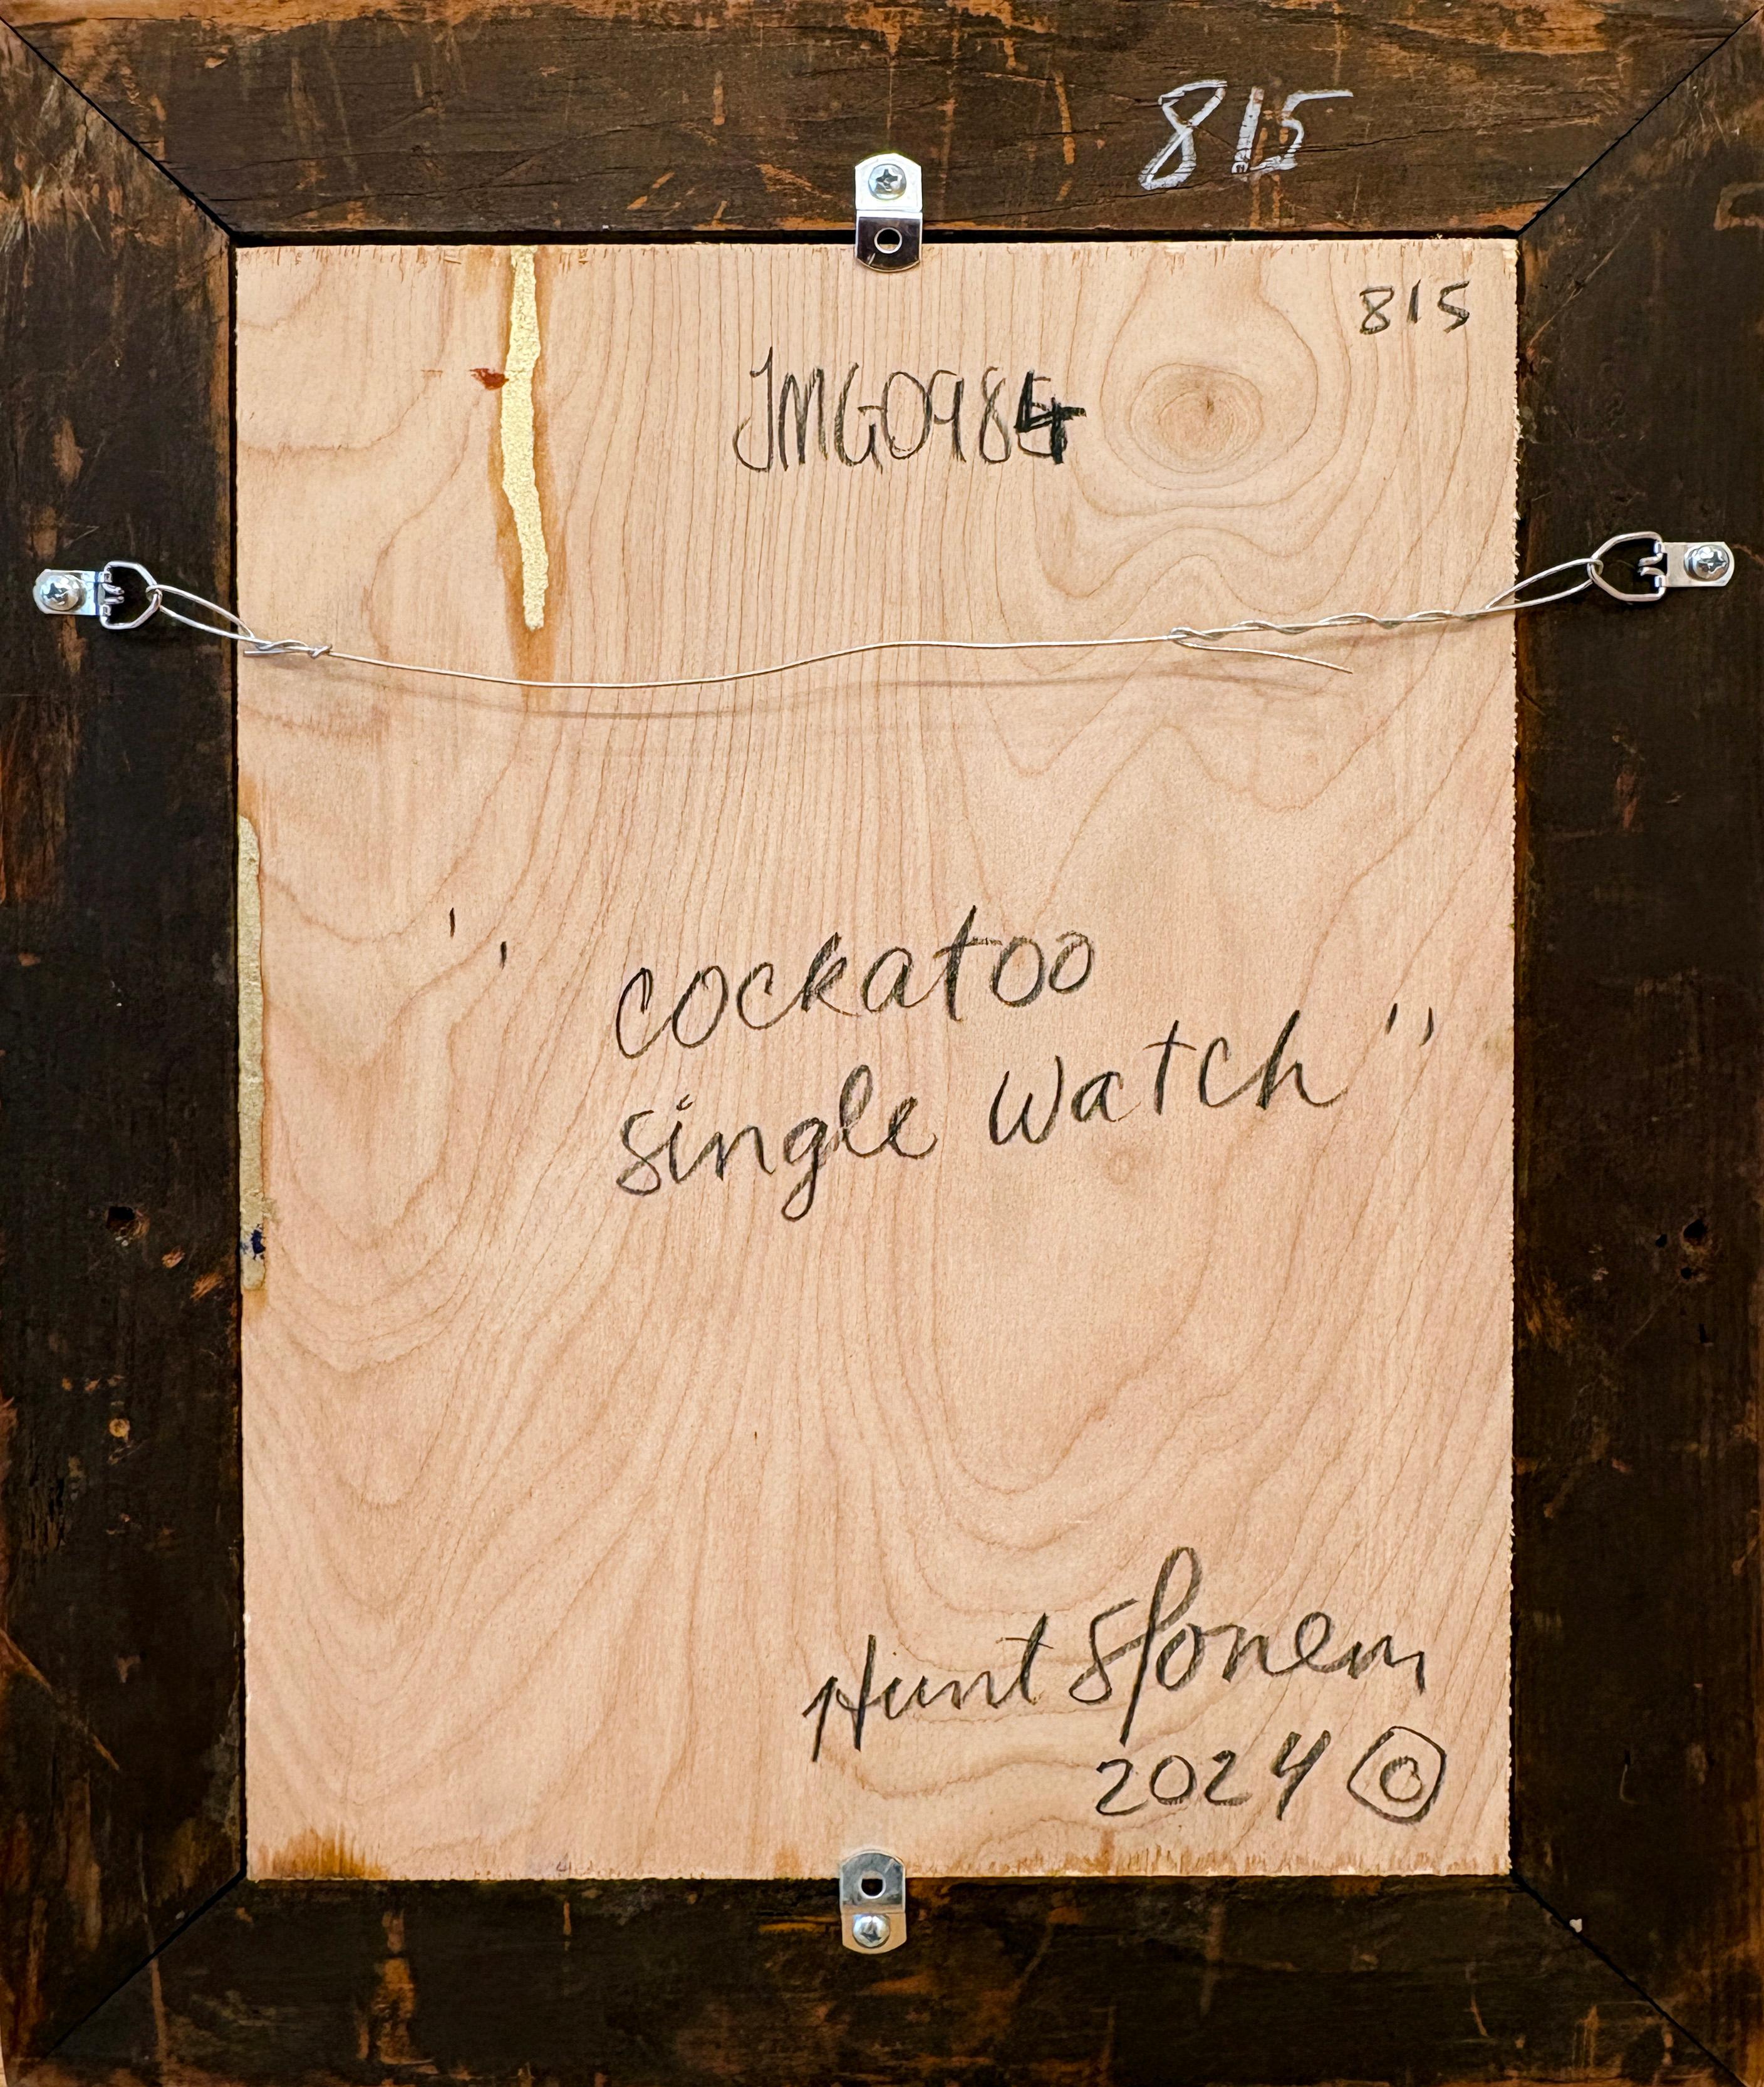 815
815
JMG0984
"cockatoo
single watch"
Hunt Slonem
2024 ©